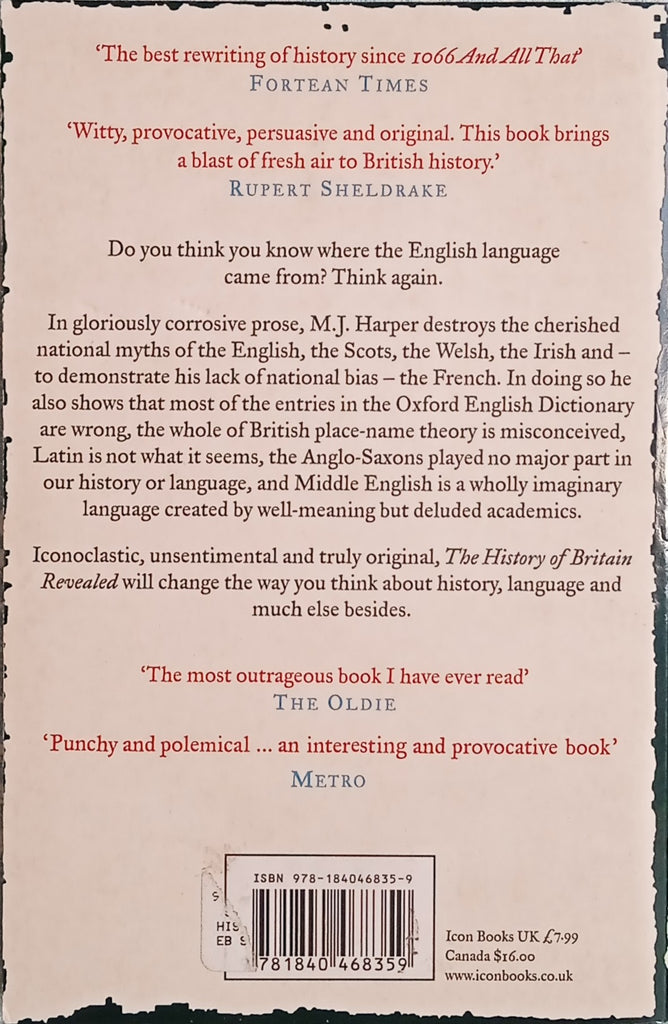 ‘The best rewriting of history since 1066 And All That’
FORTEAN TIMES
‘Witty, provocative, persuasive and original. This book brings
a blast of fresh air to British history.’
RUPERT SHELDRAKE
Do you think you know where the English language
came from? Think again.
In gloriously corrosive prose, M.J. Harper destroys the cherished
national myths of the English, the Scots, the Welsh, the Irish and –
to demonstrate his lack of national bias – the French. In doing so he
also shows that most of the entries in the Oxford English Dictionary
are wrong, the whole of British place-name theory is misconceived,
Latin is not what it seems, the Anglo-Saxons played no major part in
our history or language, and Middle English is a wholly imaginary
language created by well-meaning but deluded academics.
Iconoclastic, unsentimental and truly original, The History of Britain
Revealed will change the way you think about history, language and
much else besides.
‘The most outrageous book I have ever read’
THE OLDIE
‘Punchy and polemical ... an interesting and provocative book’
METRO
ISBN 978-184046835-9
9
HIS
EB S
781840 468359
Icon Books UK £7.99
Canada $16.00
www.iconbooks.co.uk